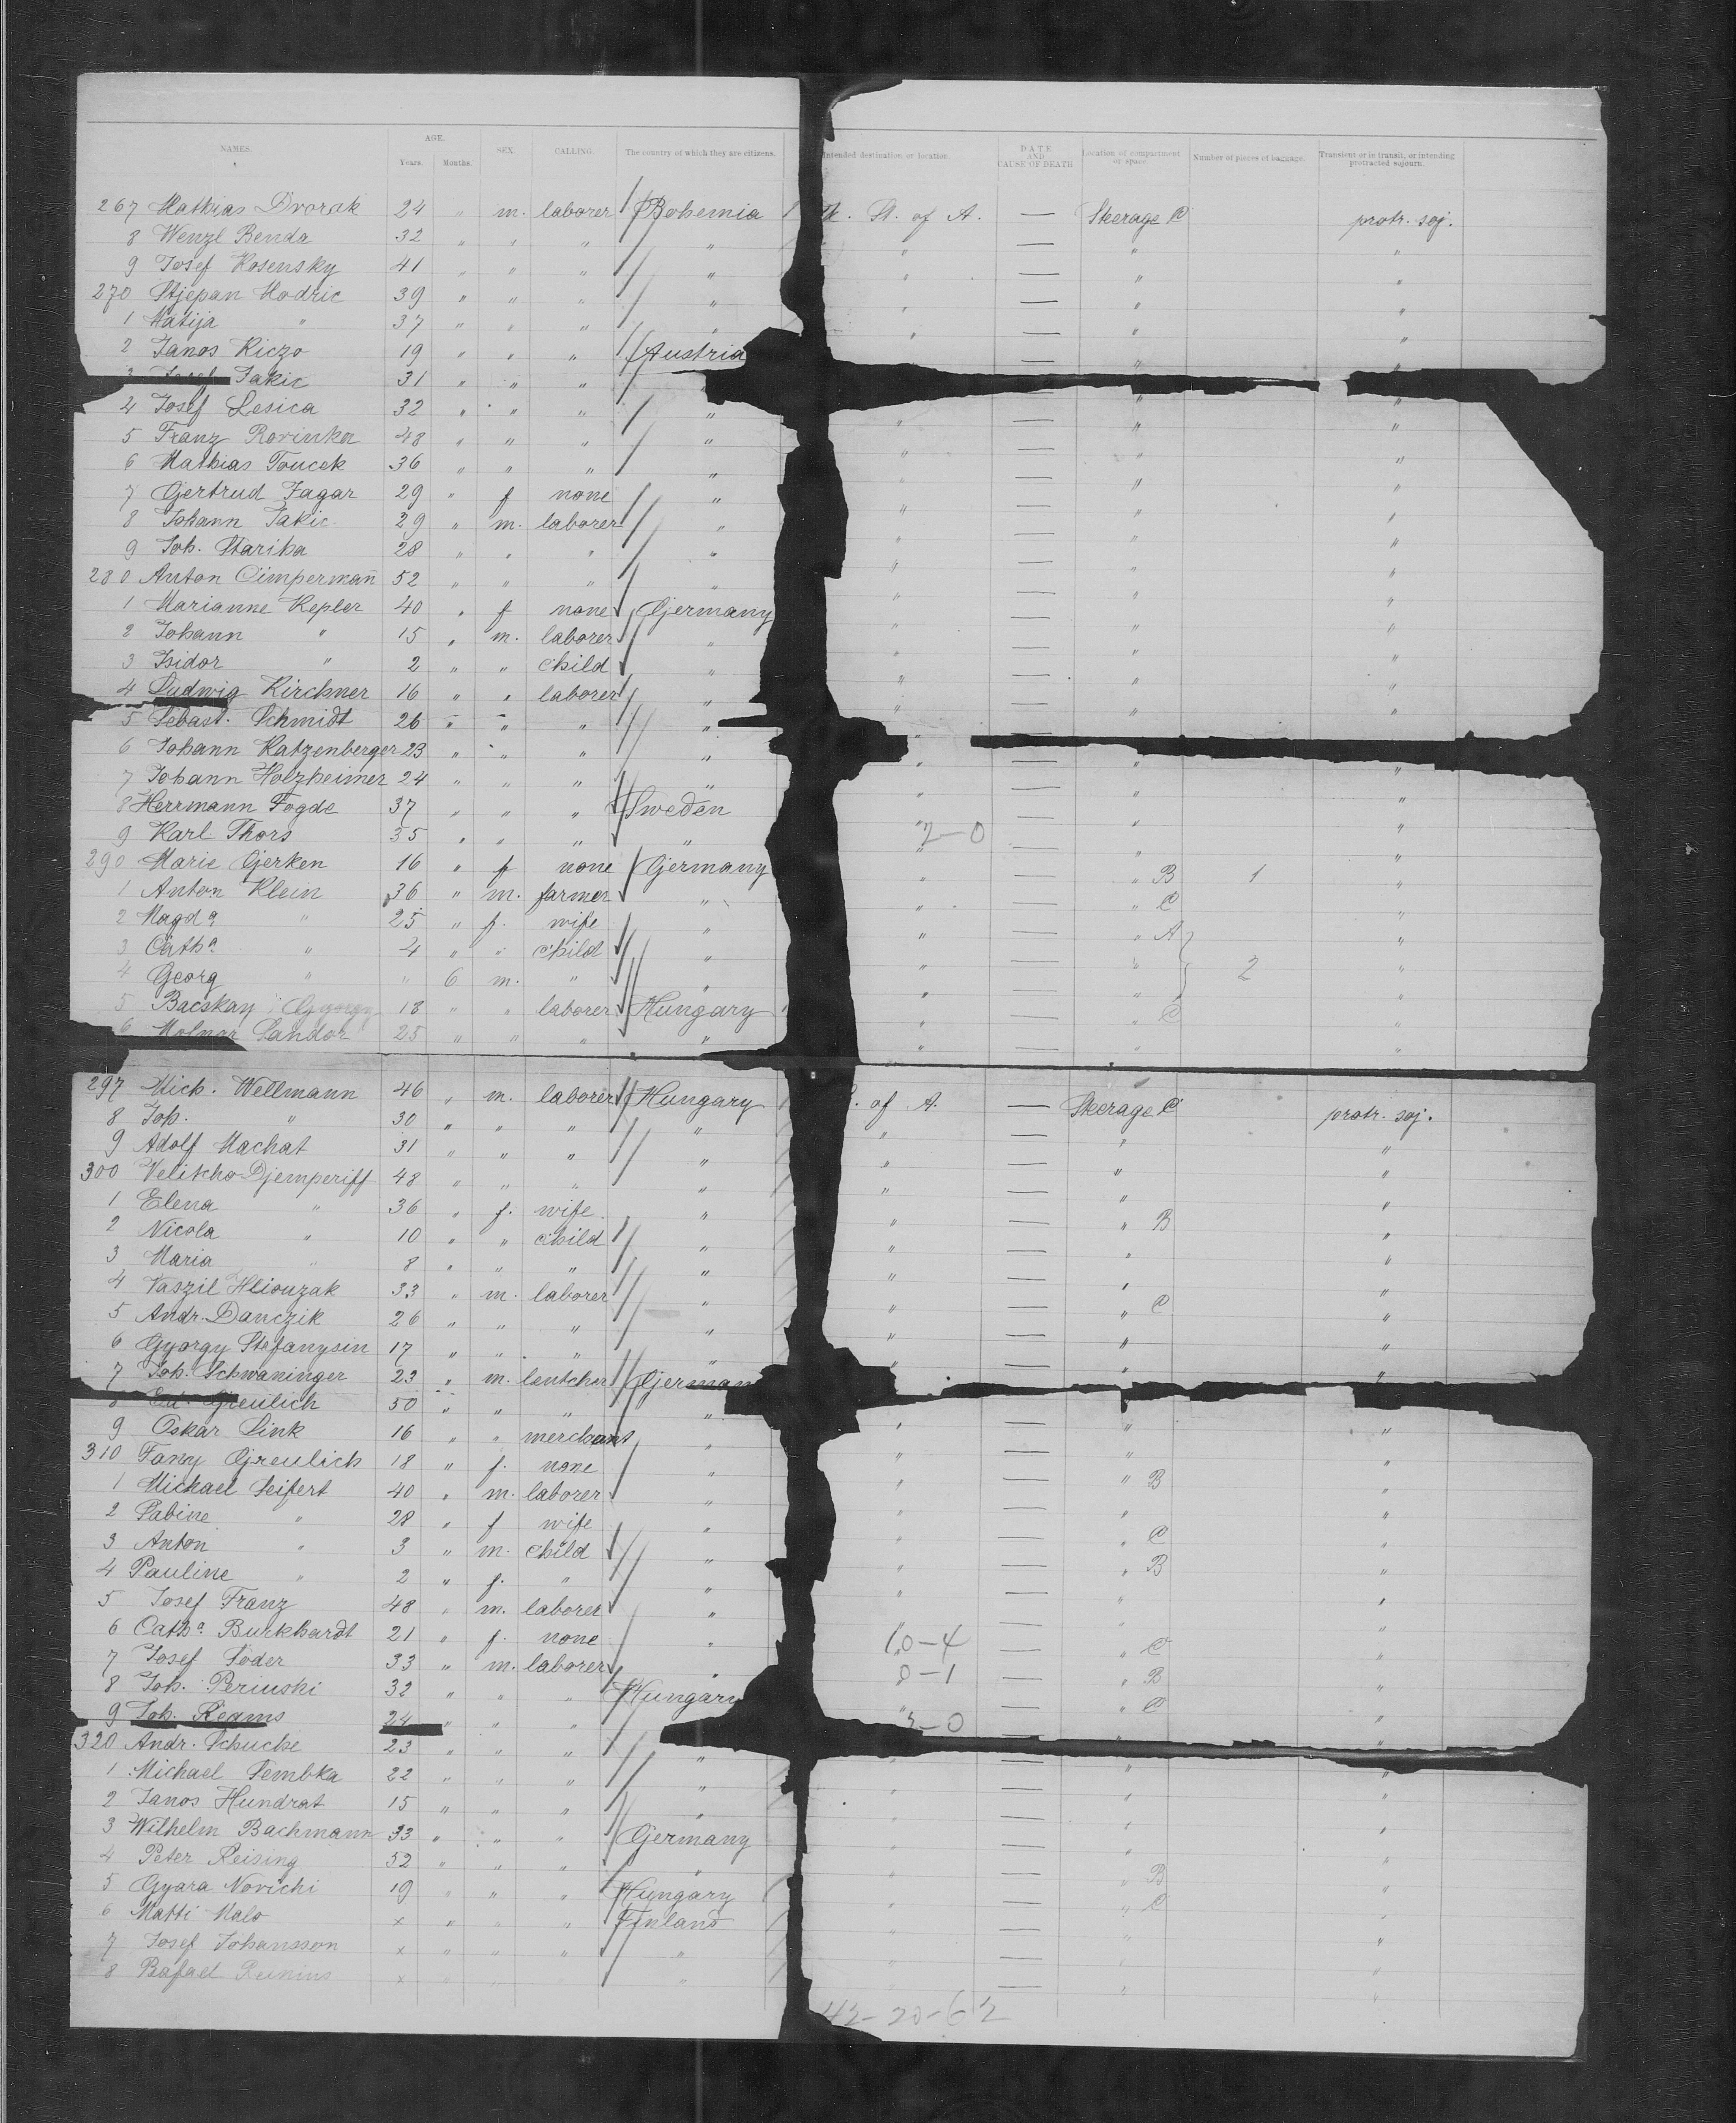 NAMES. AGE. Years. Months. SEX. CALLING. The country of which they are citizens. Intended destination or location. DATE AND CAUSE OF DEATH Location of compartment or space. Number of pieces of baggage. Transient or in transit, or intending protracted sojourn.
267 Mathias Dvorak 24 " m. laborer Bohemia St. of A. — Steerage C protr. soj.
8 Wenzl Benda 32 " " " " " — " "
9 Josef Kosensky 41 " " " " " — " "
270 Stjepan Modric 39 " " " " " — " "
1 Matija " 37 " " " " " — " "
2 Janos Riczo 19 " " " Austria " — " "
3 Josef Jakic 31 " " " " — " "
4 Josef Lesica 32 " " " " " — " "
5 Franz Rovinker 48 " " " " " — " "
6 Mathias Toucek 36 " " " " " — " "
7 Gertrud Jagar 29 " f none " " — " "
8 Johann Jakic 29 " m. laborer " " — " "
9 Joh. Stariha 28 " " " " " — " "
280 Anton Cimpermañ 52 " " " " " — " "
1 Marianne Kepler 40 " f none Germany " — " "
2 Johann " 15 " m. laborer " " — " "
3 Isidor " 2 " " child " " — " "
4 Ludwig Kirchner 16 " " laborer " " — " "
5 Sebast. Schmidt 26 " " " " " — " "
6 Johann Katzenberger 23 " " " " "
7 Johann Holzheimer 24 " " " " " — " "
8 Herrmann Fogde 37 " " " Sweden " — " "
9 Karl Thors 35 " " " " " 2-0 — " "
290 Marie Gerken 16 " f none Germany " — " B 1 "
1 Anton Klein 36 " m. farmer " " — " C "
2 Magda " 25 " f. wife " " — " A "
3 Catha " 4 " " child " " — " 2 "
4 Georg " " 6 m. " " " — " "
5 Bacskay Gyorgy 18 " " laborer Hungary " — " C "
6 Molnar Sandor 25 " " " " " — " "
297 Mich. Wellmann 46 " m. laborer Hungary . of A. — Steerage C protr. soj.
8 Joh. " 30 " " " " " — " "
9 Adolf Machat 31 " " " " " — " "
300 Velitcho Djemperiff 48 " " " " " — " "
1 Elena " 36 " f. wife " " — " B "
2 Nicola " 10 " " child " " — " "
3 Maria " 8 " " " " " — " "
4 Vaszil Hliouzak 33 " m. laborer " " — " C "
5 Andr. Danczik 26 " " " " " — " "
6 Gyorgy Stefanysin 17 " " " " " — " "
7 Joh. Schwaninger 23 " m. Germany
8 Ed. Greulich 50 " " " "
9 Oskar Link 16 " " merchant " " — " "
310 Fany Greulich 18 " f. none " " — " B "
1 Michael Seifert 40 " m. laborer " " — " "
2 Sabine " 28 " f wife " " — " C "
3 Anton " 3 " m. child " " — " B "
4 Pauline " 2 " f. " " " — " "
5 Josef Franz 48 " m. laborer " " — " "
6 Catha Burkhardt 21 " f. none " 10-4 — " C "
7 Josef Soder 33 " m. laborer " 0-1 — " B "
8 Joh. 32 " " " Hungary " — " C "
9 Joh. Reams 24 " " " 3-0 — " "
320 Andr. Schuche 23 " " " "
1 Michael Sembka 22 " " " " " — " "
2 Janos Hundrat 15 " " " " " — " "
3 Wilhelm Bachmann 33 " " " Germany " — " "
4 Peter Reising 52 " " " " " — " B "
5 Gyara Novichi 19 " " " Hungary " — " C "
6 Matti Malo x " " " Finland " — " "
7 Josef Johansson x " " " " " — " "
8 Rafael x " " " " — " "
42-20-62